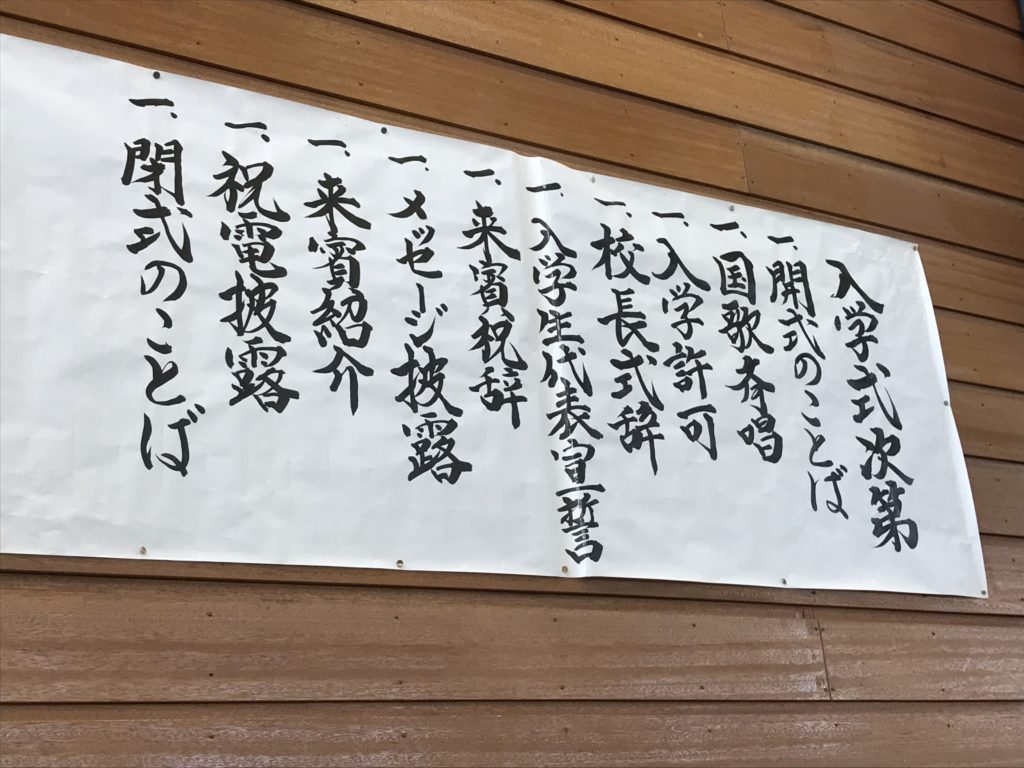 入学式次第
一、開式のことば
一、国歌斉唱
一、入学許可
一、校長式辞
一、入学生代表宣誓
一、来賓祝辞
一、メッセージ披露
一、来賓紹介
一、祝電披露
一、閉式のことば